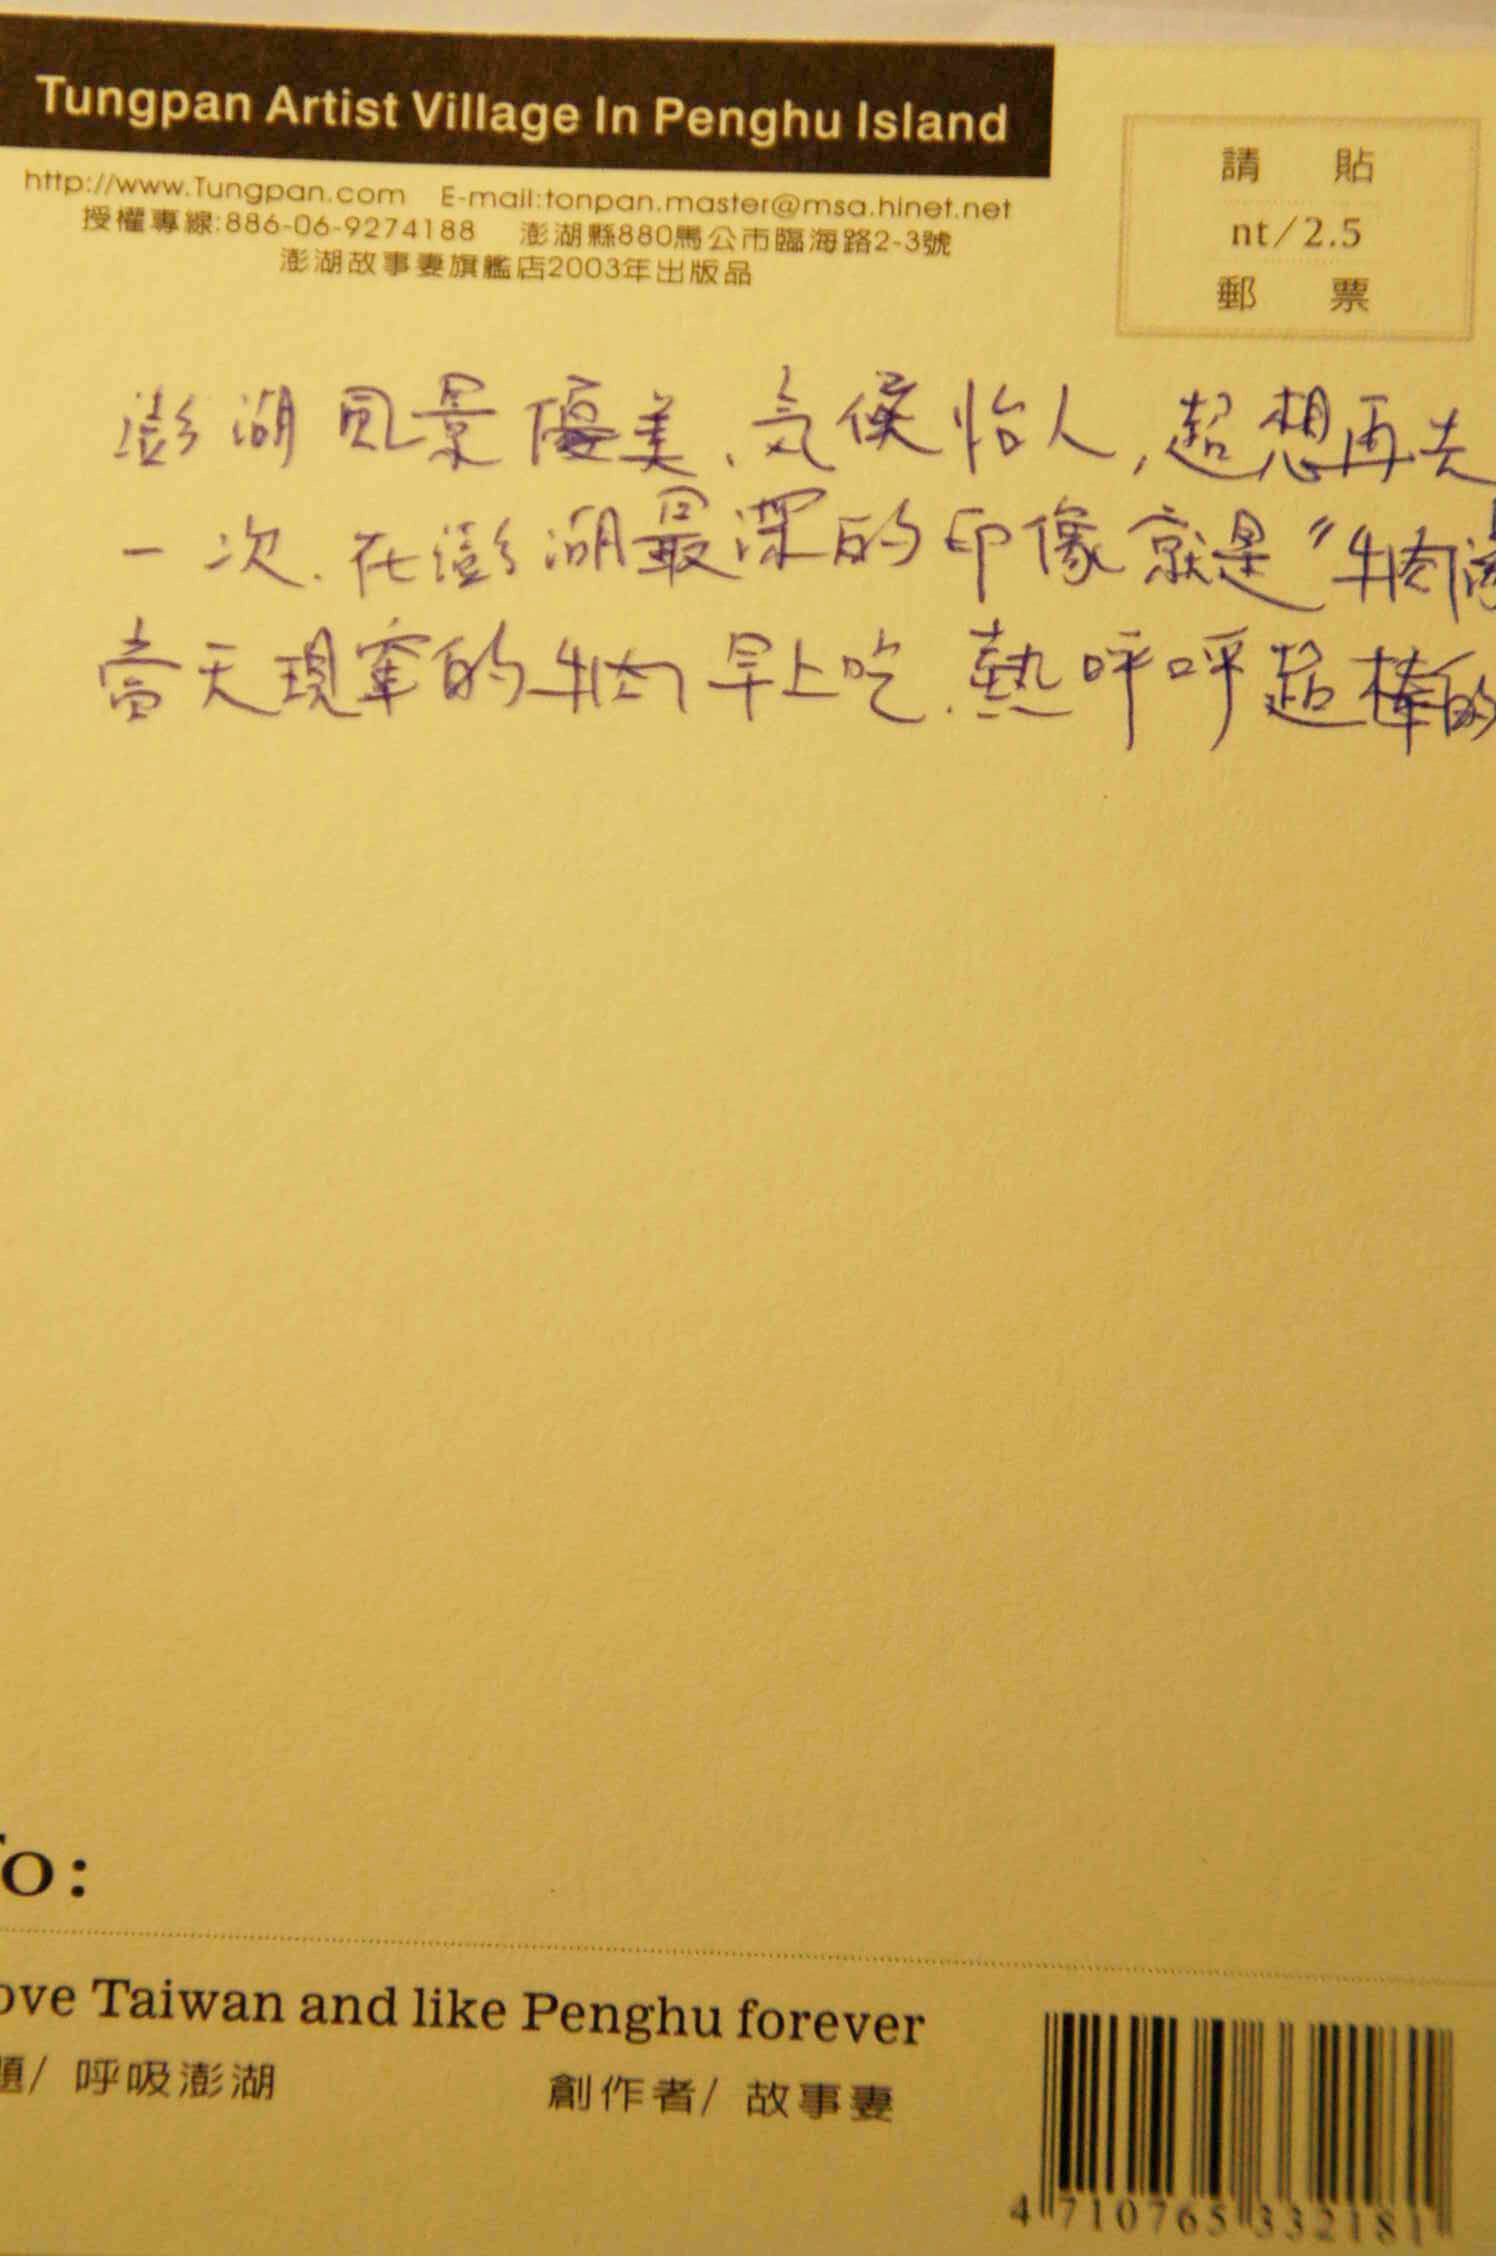 Tungpan Artist Village In Penghu Island
http://www.Tungpan.com E-mail:tonpan.master@msa.hinet.net
授權專線:886-06-9274188 澎湖縣880馬公市臨海路2-3號
澎湖故事妻旗艦店2003年出版品
請 貼
nt/2.5
郵 票
澎湖風景優美、気候怡人,超想再去
一次.在澎湖最深的印像就是"牛肉湯
當天現宰的牛肉早上吃.熱呼呼超棒的
To:
ove Taiwan and like Penghu forever
題/ 呼吸澎湖 創作者/ 故事妻
4 710765 332181